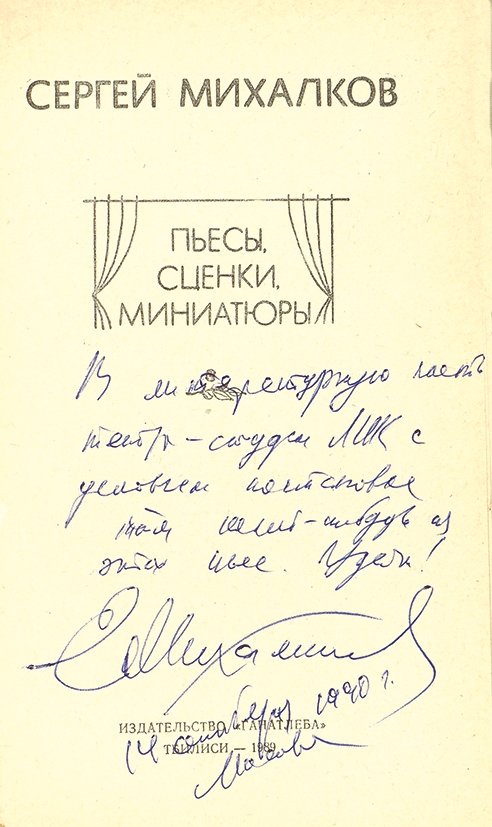 СЕРГЕЙ МИХАЛКОВ
ПЬЕСЫ,
СЦЕНКИ,
МИНИАТЮРЫ
В литературную часть
театра-студии с
условием постановки
какой-нибудь из
этих пьес. Удачи!
С. Михалков
ИЗДАТЕЛЬСТВО «ГАНАТЛЕБА»
ТБИЛИСИ — 1989
14 1990 г.
Москва